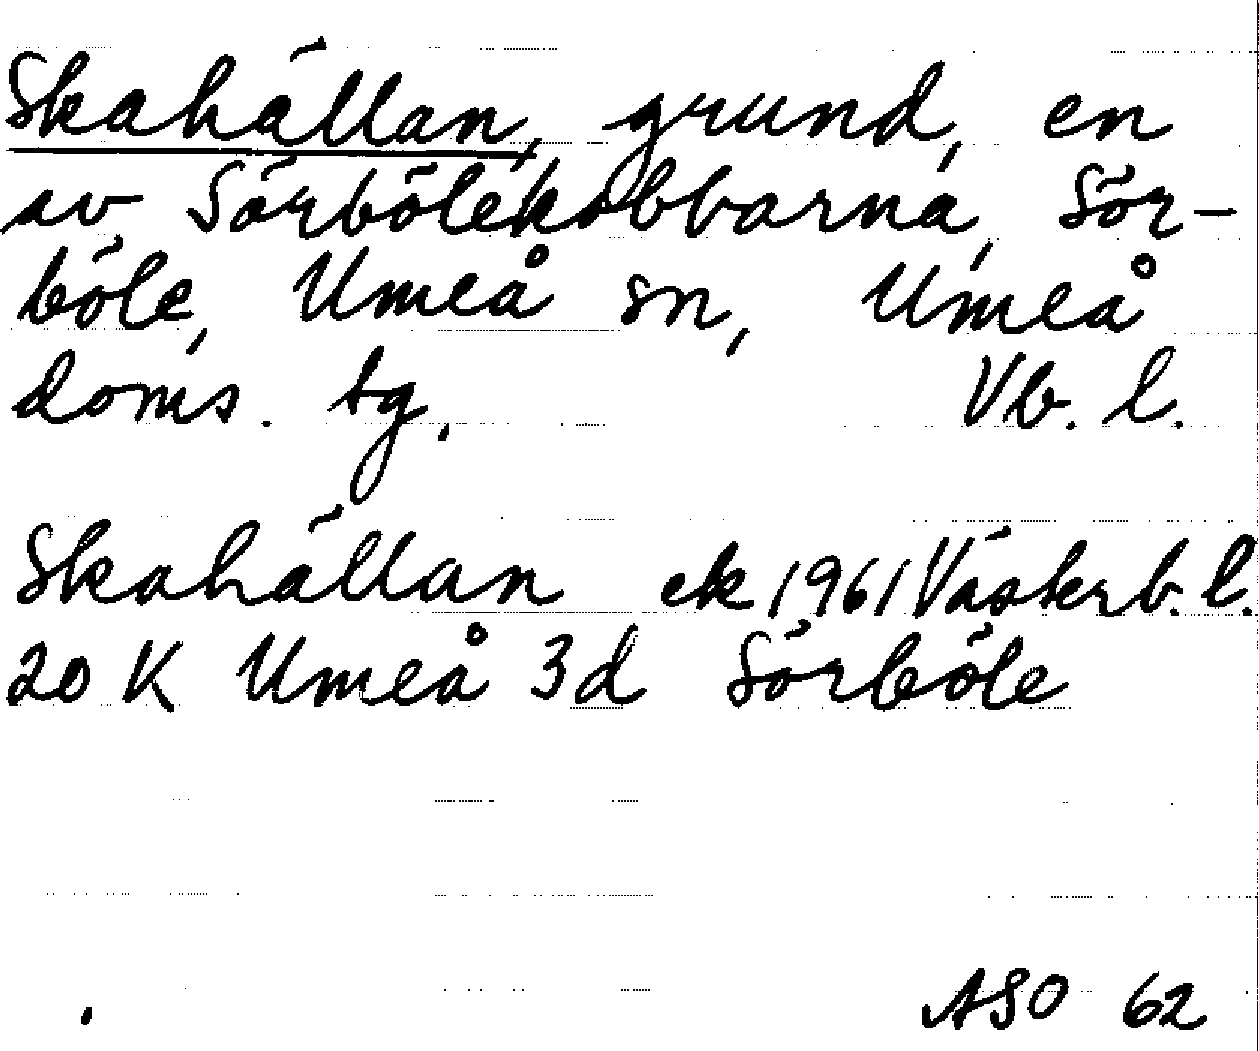 Skahällan, grund, en
av Sörbölekobbarna, Sör-
böle, Umeå sn, Umeå
doms. tg. Vb. l.
Skahällan ek 1961 Västerb. l.
20 K Umeå 3d Sörböle
ASO 62